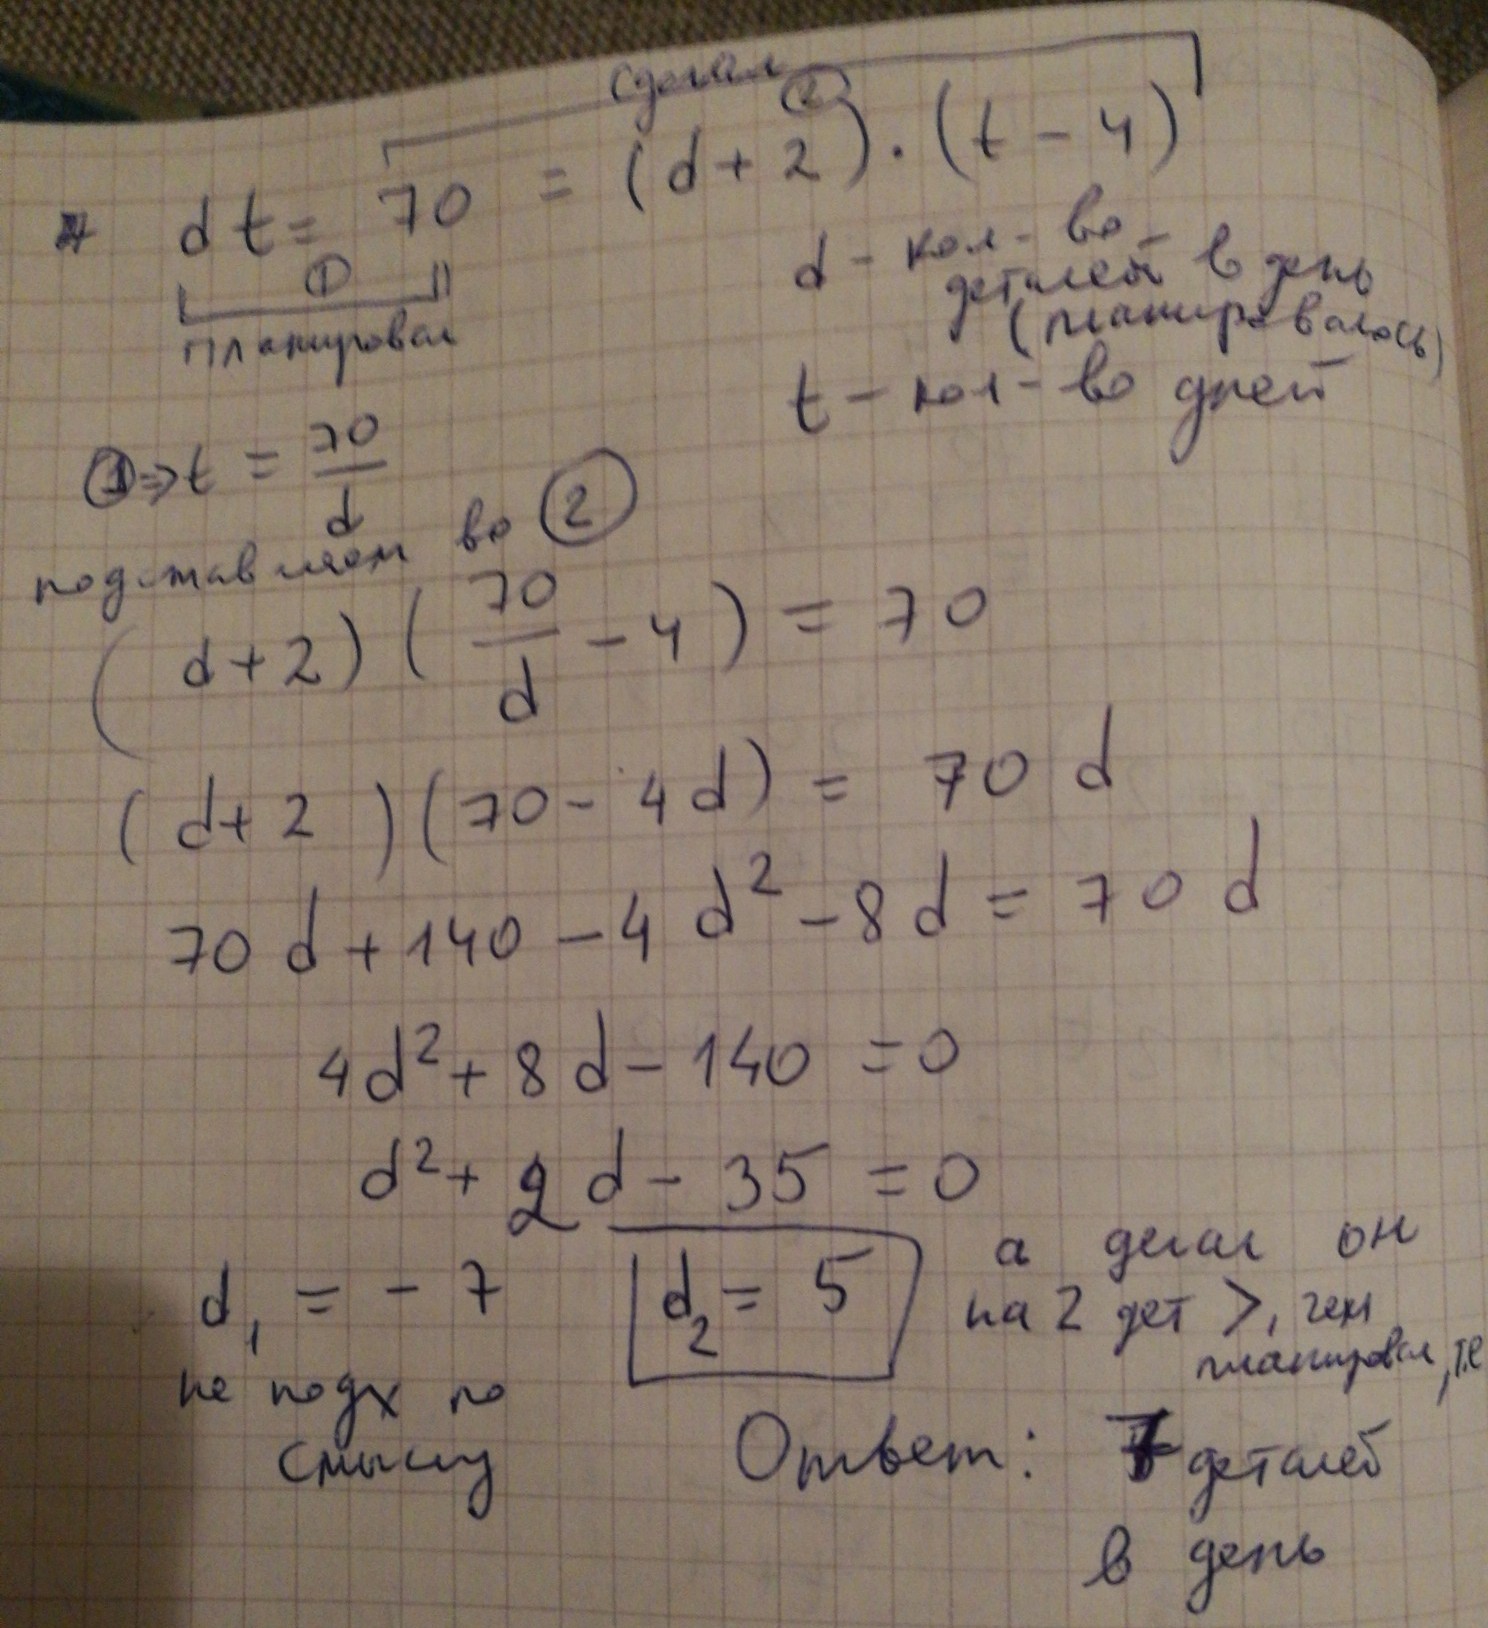 сделал
dt = 70 = (d + 2) · (t - 4)
①
②
планировал
d - кол-во
деталей в день
(планировалось)
t - кол-во дней
① => t = 70/d
подставляем во ②
(d + 2) (70/d - 4) = 70
(d + 2) (70 - 4d) = 70 d
70 d + 140 - 4 d² - 8 d = 70 d
4d² + 8 d - 140 = 0
d² + 2 d - 35 = 0
d₁ = - 7
не подх по
смыслу
d₂ = 5
а делал он
на 2 дет >, чем
планировал, т.е
Ответ: 7 деталей
в день